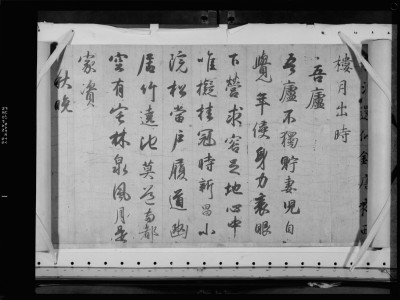 樓月出時
吾廬
吾廬不獨貯妻児自
覺年侵身力衰眼
下營求容足地心中
准擬挂冠時新昌小
院松當戸履道幽
居竹遶池莫道両都
空有宅林泉風月是
家資
秋晩